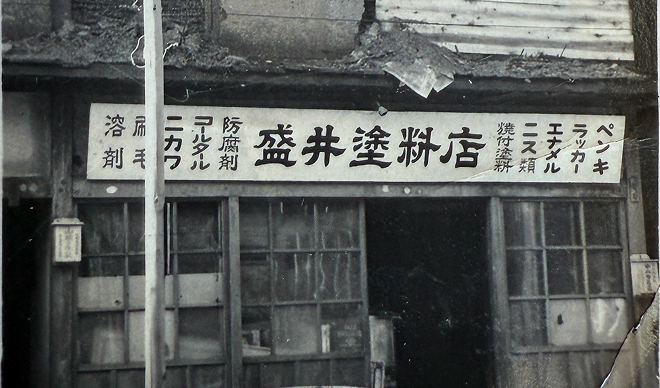 ペンキ
ラッカー
エナメル
ニス類
焼付塗料
盛井塗料店
防腐剤
コールタル
ニカワ
刷毛
溶剤